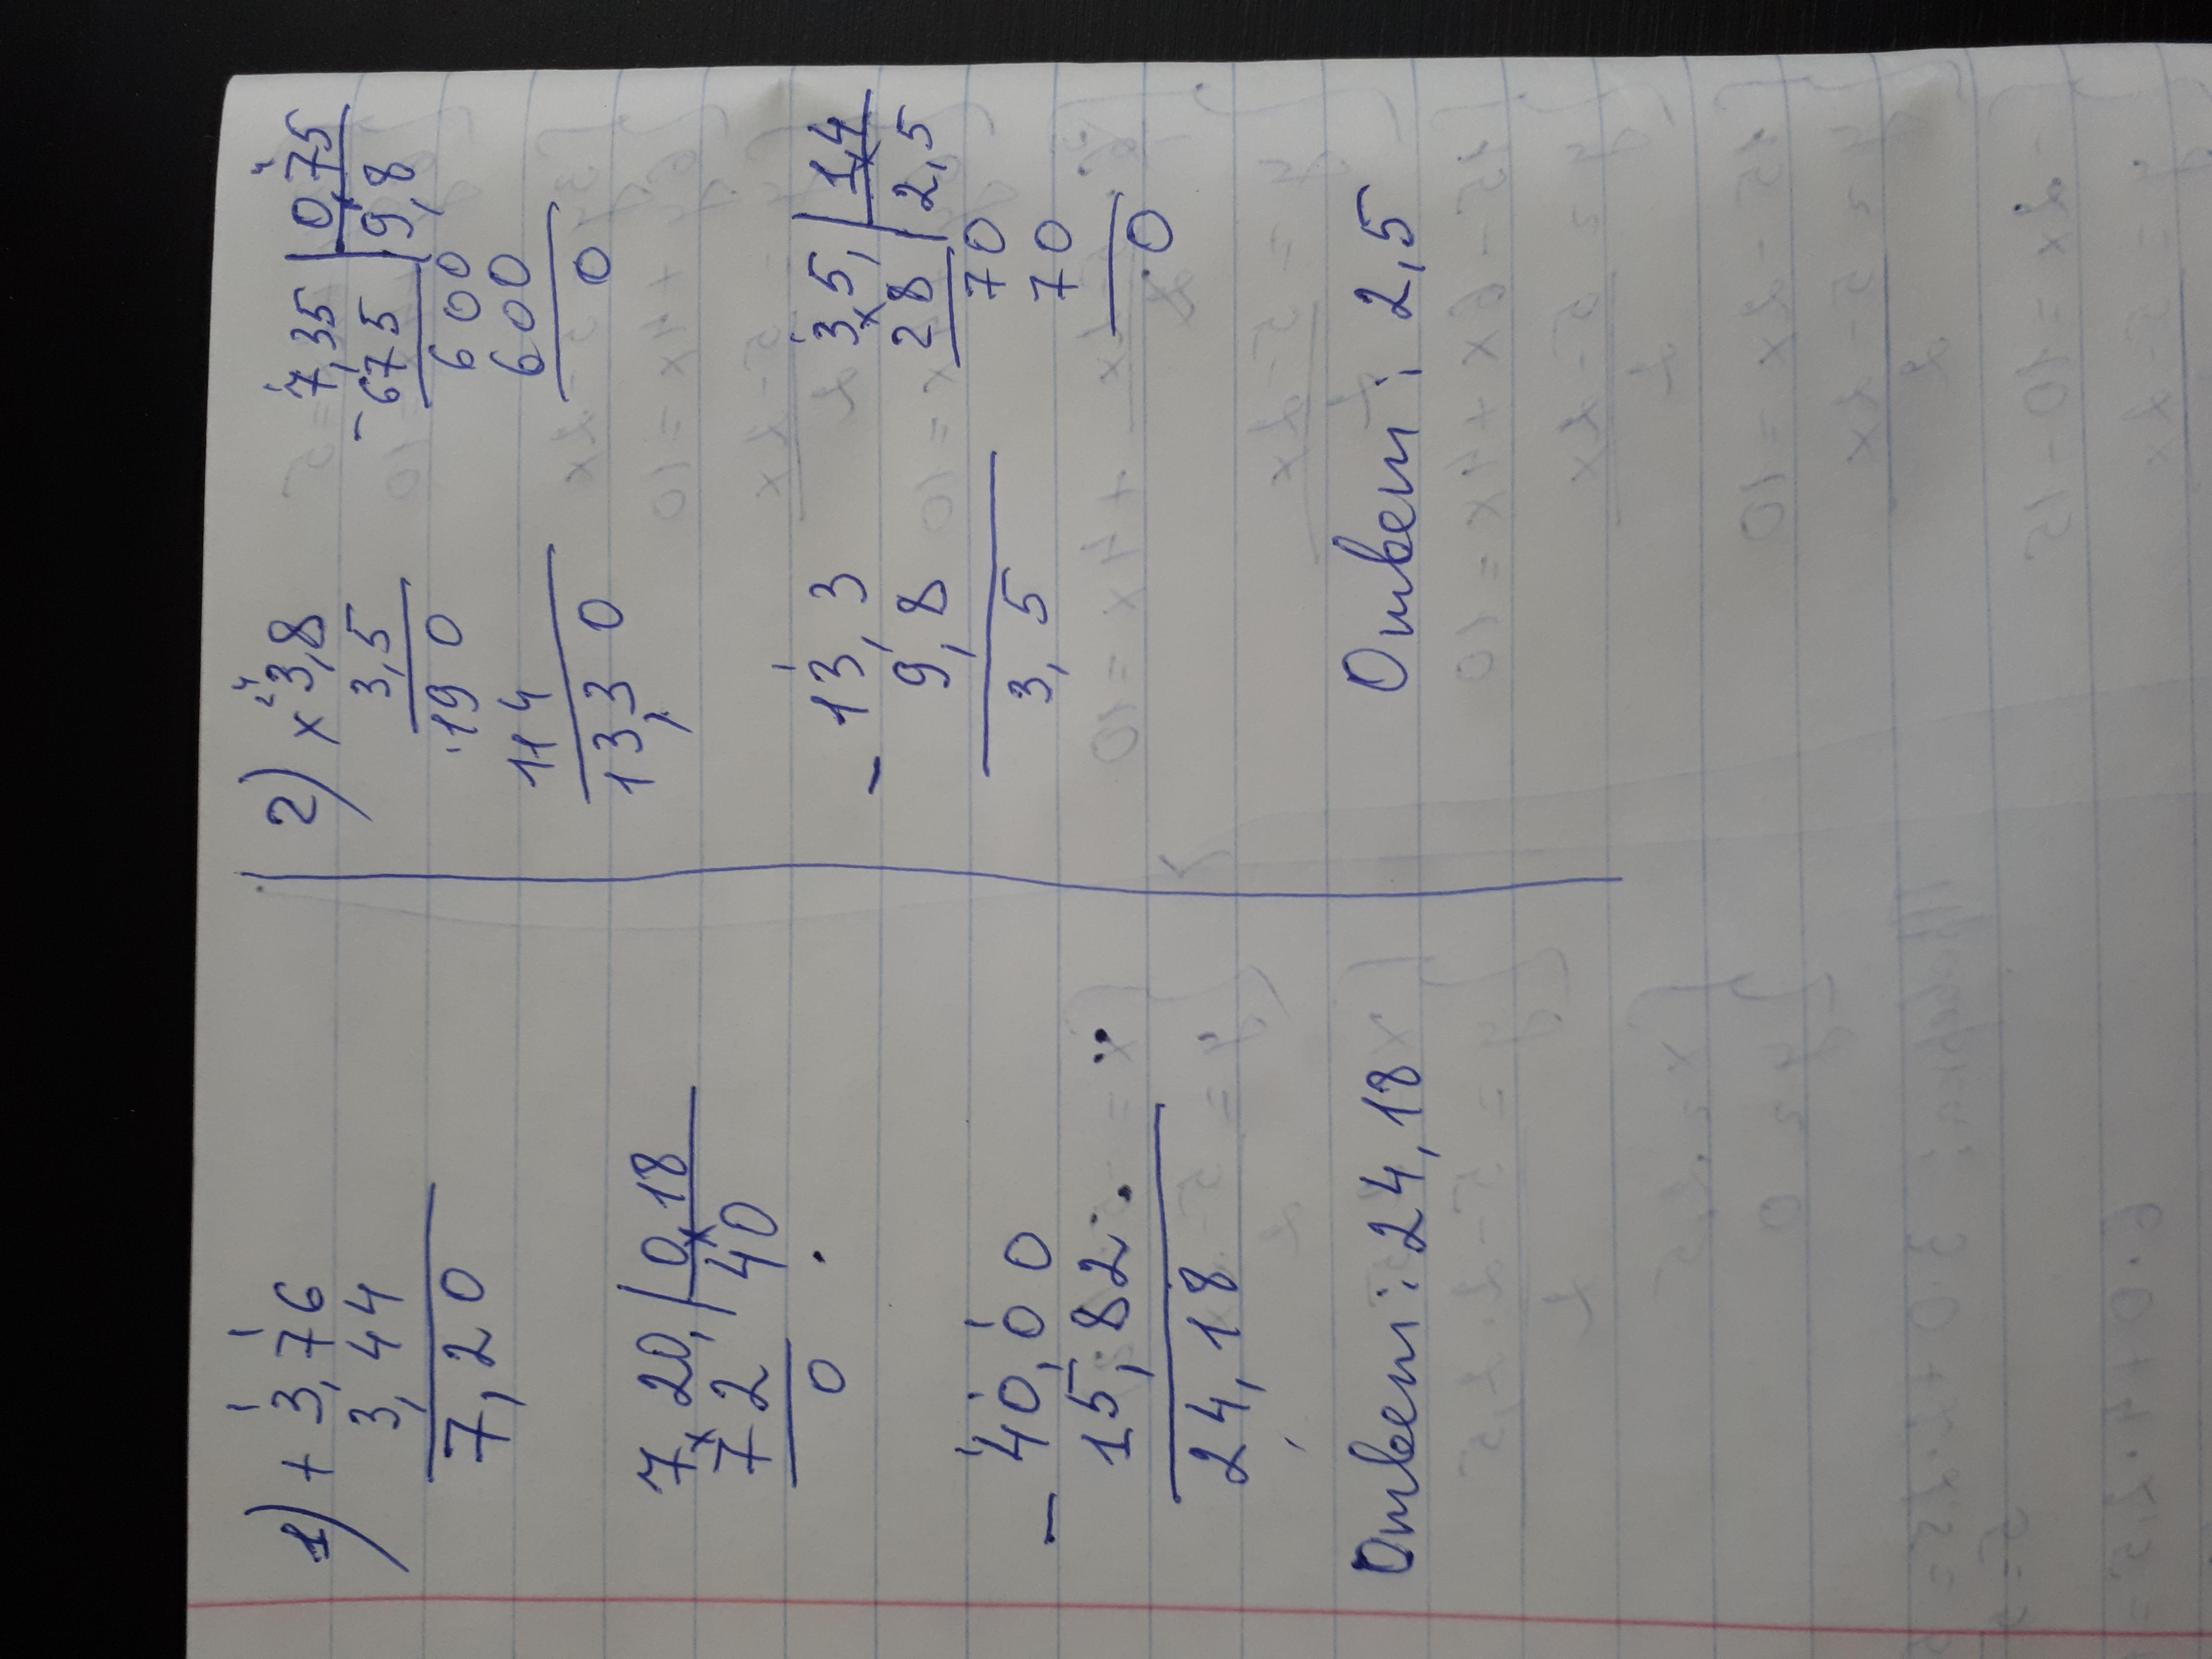 1) + 3,76
3,44
7,20
7,20 | 0,18
72 | 40
0
- 40,00
15,82
24,18
Ответ: 24,18
2) x 3,8
3,5
190
114
13,30
7,35 | 0,75
- 675 | 9,8
600
600
0
- 13,3
9,8
3,5
3,5 | 1,4
28 | 2,5
70
70
0
Ответ: 2,5